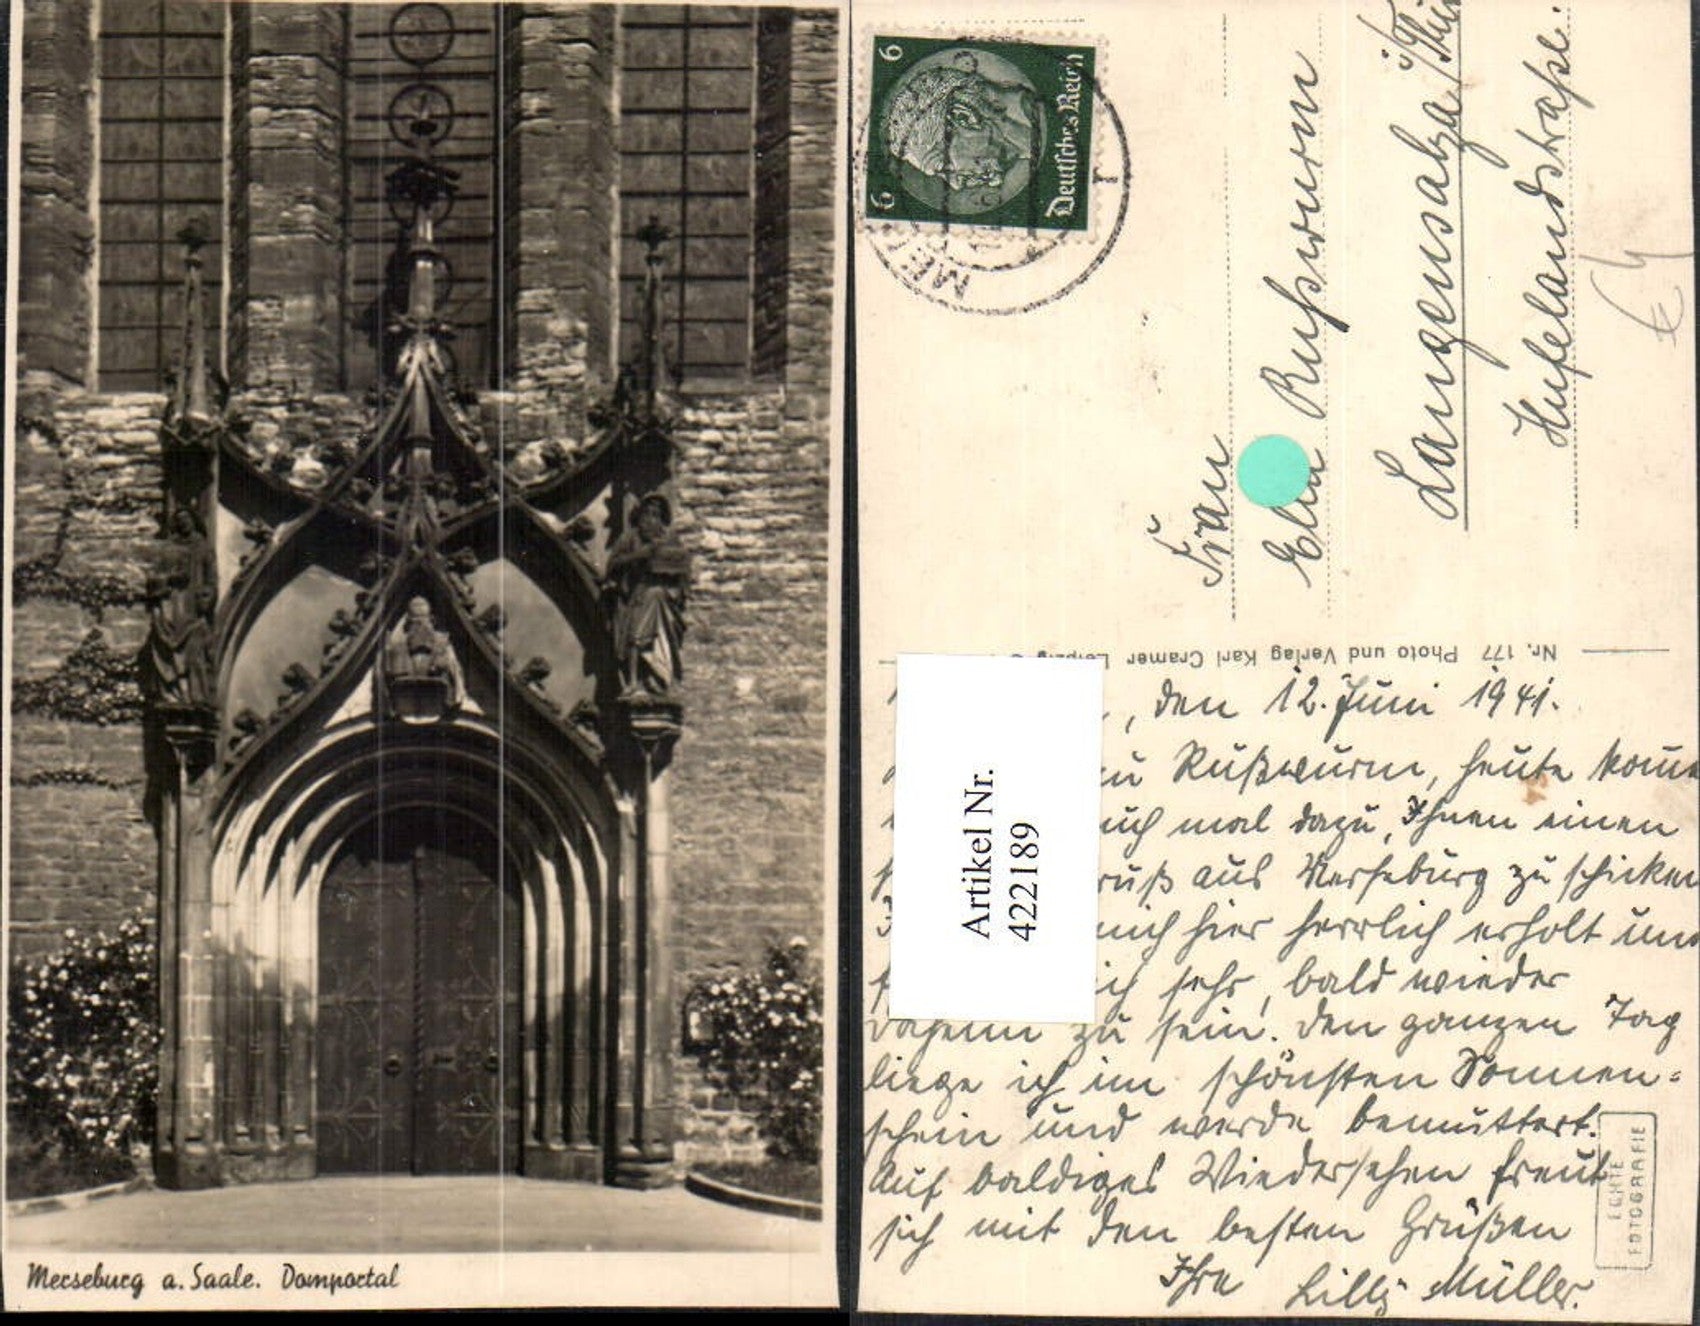 Merseburg a. Saale. Domportal
6
6
Deutsches Reich
Frau
Rußwurm
Langensalza / Thür
Hufelandstraße.
Nr. 177 Photo und Verlag Karl Cramer Leipzig
Artikel Nr.
4221189
, den 12. Juni 1941.
Rußwurm, heute komme
mal dazu, Ihnen einen
aus Merseburg zu schicken
mich hier herrlich erholt und
ich sehr, bald wieder
daheim zu sein. Den ganzen Tag
liege ich im schönsten Sonnen-
schein und werde bemuttert.
Auf baldiges Wiedersehen freut
sich mit den besten Grüßen
Ihre Lilly Müller.
ECHTE
FOTOGRAFIE